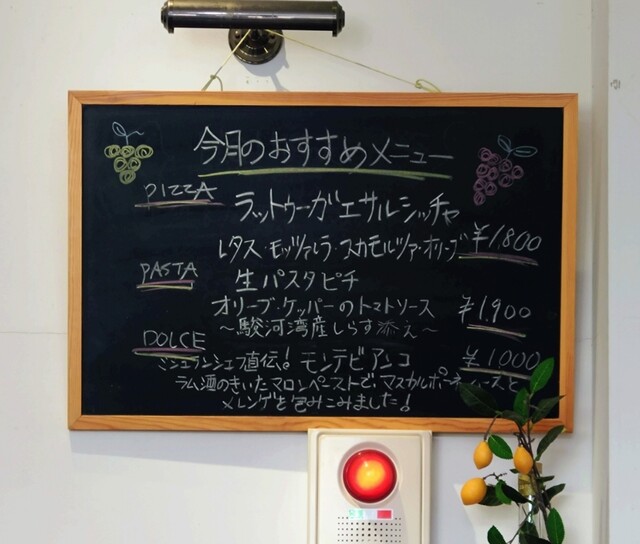 今月のおすすめメニュー
PIZZA
ラットゥーガエサルシッチャ
レタス・モッツァレラ・スカモルツァ・オリーブ ¥1,800
PASTA
生パスタピチ
オリーブ・ケッパーのトマトソース ¥1,900
〜駿河湾産しらす添え〜
DOLCE
ミシュランシェフ直伝! モンテビアンコ ¥1000
ラム酒のきいたマロンペーストで、マスカルポーネ ースと
メレンゲを包みこみました!